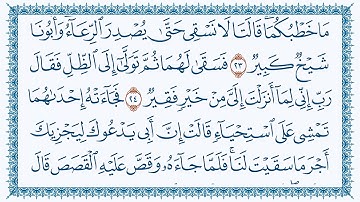 مَا خَطْبُكُمَا قَالَتَا لَا نَسْقِى حَتَّىٰ يُصْدِرَ ٱلرِّعَآءُ وَأَبُونَا
شَيْخٌ كَبِيرٌ ٢٣ فَسَقَىٰ لَهُمَا ثُمَّ تَوَلَّىٰٓ إِلَى ٱلظِّلِّ فَقَالَ
رَبِّ إِنِّى لِمَآ أَنزَلْتَ إِلَىَّ مِنْ خَيْرٍ فَقِيرٌ ٢٤ فَجَآءَتْهُ إِحْدَىٰهُمَا
تَمْشِى عَلَى ٱسْتِحْيَآءٍ قَالَتْ إِنَّ أَبِى يَدْعُوكَ لِيَجْزِيَكَ
أَجْرَ مَا سَقَيْتَ لَنَا فَلَمَّا جَآءَهُۥ وَقَصَّ عَلَيْهِ ٱلْقَصَصَ قَالَ